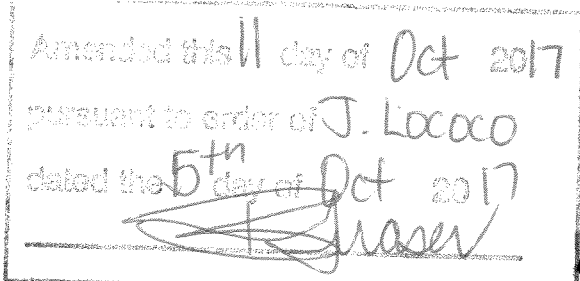 Amended this 11 day of Oct 2017
pursuant to order of J. Lococo
dated the 5th day of Oct 2017